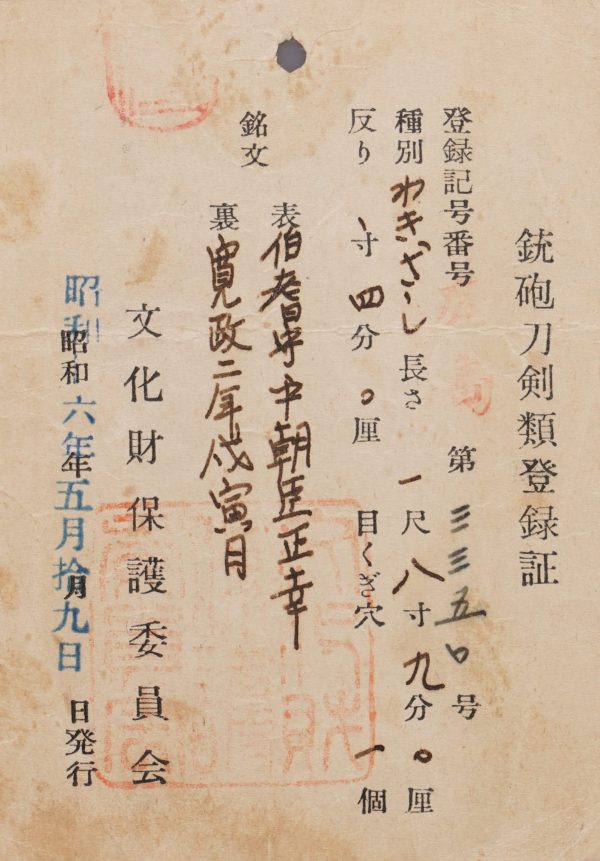 銃砲刀剣類登録証
登録記号番号 第三三五〇号
種別 わきざし 長さ 一尺八寸九分〇厘
反り 、寸四分〇厘 目くぎ穴 一個
銘文
表 伯耆守平朝臣正幸
裏 寛政二年戌寅月
文化財保護委員会
昭和 年 月 日発行
昭和 六年五月拾九日